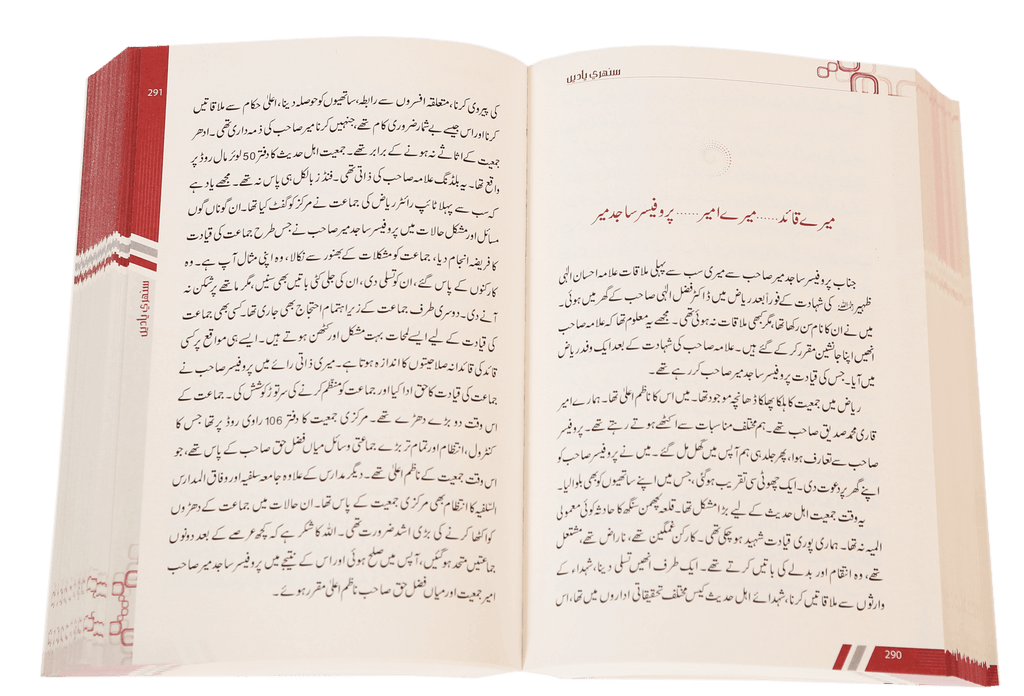 سنھری یادیں
میرے قائد......میرے امیر......پروفیسر ساجد میر
جناب پروفیسر ساجد میر صاحب سے میری سب سے پہلی ملاقات علامہ احسان الٰہی
ظہیر رحمہ اللہ کی شہادت کے فوراً بعد ریاض میں ڈاکٹر فضل الٰہی صاحب کے گھر میں ہوئی۔
میں نے ان کا نام سن رکھا تھا، مگر کبھی ملاقات نہ ہوئی تھی۔ مجھے یہ معلوم تھا کہ علامہ صاحب
انھیں اپنا جانشین مقرر کر گئے ہیں۔ علامہ صاحب کی شہادت کے بعد ایک وفد ریاض
میں آیا۔ جس کی قیادت پروفیسر ساجد میر صاحب کر رہے تھے۔
ریاض میں جمعیت کا ہلکا پھلکا ڈھانچہ موجود تھا۔ میں اس کا ناظم اعلیٰ تھا۔ ہمارے امیر
قاری محمد صدیق صاحب تھے۔ ہم مختلف مناسبات سے اکٹھے ہوتے رہتے تھے۔ پروفیسر
صاحب سے تعارف ہوا، پھر جلد ہی ہم آپس میں گھل مل گئے۔ میں نے پروفیسر صاحب کو
اپنے گھر پر دعوت دی۔ ایک چھوٹی سی تقریب ہو گئی، جس میں اپنے ساتھیوں کو بھی بلوا لیا۔
یہ وقت جمعیت اہل حدیث کے لیے بڑا مشکل تھا۔ قلعہ لچھمن سنگھ کا حادثہ کوئی معمولی
المیہ نہ تھا۔ ہماری پوری قیادت شہید ہو چکی تھی۔ کارکن غمگین تھے، ناراض تھے، مشتعل
تھے، وہ انتقام اور بدلے کی باتیں کرتے تھے۔ ایک طرف انھیں تسلی دینا، شہداء کے
وارثوں سے ملاقاتیں کرنا، شہدائے اہل حدیث کیس مختلف تحقیقاتی اداروں میں تھا، اس
290
291
سنھری یادیں
کی پیروی کرنا، متعلقہ افسروں سے رابطہ، ساتھیوں کو حوصلہ دینا، اعلیٰ حکام سے ملاقاتیں
کرنا اور اس جیسے بے شمار ضروری کام تھے، جنہیں کرنا میر صاحب کی ذمہ داری تھی۔ ادھر
جمعیت کے اثاثے نہ ہونے کے برابر تھے۔ جمعیت اہل حدیث کا دفتر 50 لوئر مال روڈ پر
واقع تھا۔ یہ بلڈنگ علامہ صاحب کی ذاتی تھی۔ فنڈز بالکل ہی پاس نہ تھے۔ مجھے یاد ہے
کہ سب سے پہلا ٹائپ رائٹر ریاض کی جماعت نے مرکز کو گفٹ کیا تھا۔ ان گوناں گوں
مسائل اور مشکل حالات میں پروفیسر ساجد میر صاحب نے جس طرح جماعت کی قیادت
کا فریضہ انجام دیا، جماعت کو مشکلات کے بھنور سے نکالا، وہ اپنی مثال آپ ہے۔ وہ
کارکنوں کے پاس گئے، ان کو تسلی دی، ان کی جلی کٹی باتیں بھی سنیں، مگر ماتھے پر شکن نہ
آنے دی۔ دوسری طرف جماعت کے زیر اہتمام احتجاج بھی جاری تھا۔ کسی بھی جماعت
کی قیادت کے لیے ایسے لمحات بہت مشکل اور کٹھن ہوتے ہیں۔ ایسے ہی مواقع پر کسی
قائد کی قائدانہ صلاحیتوں کا اندازہ ہوتا ہے۔ میری ذاتی رائے میں پروفیسر صاحب نے
جماعت کی قیادت کا حق ادا کیا اور جماعت کو منظم کرنے کی سر توڑ کوشش کی۔ جماعت کے
اس وقت دو بڑے دھڑے تھے۔ مرکزی جمعیت کا دفتر 106 راوی روڈ پر تھا جس کا
کنٹرول، انتظام اور تمام تر بڑے جماعتی وسائل میاں فضل حق صاحب کے پاس تھے، جو
اس وقت جمعیت کے ناظم اعلیٰ تھے۔ دیگر مدارس کے علاوہ جامعہ سلفیہ اور وفاق المدارس
السّلفیہ کا انتظام بھی مرکزی جمعیت کے پاس تھا۔ ان حالات میں جماعت کے دھڑوں
کو اکٹھا کرنے کی بڑی اشد ضرورت تھی۔ اللہ کا شکر ہے کہ کچھ عرصے کے بعد دونوں
جماعتیں متحد ہو گئیں، آپس میں صلح ہوئی اور اس کے نتیجے میں پروفیسر ساجد میر صاحب
امیر جمعیت اور میاں فضل حق صاحب ناظم اعلیٰ مقرر ہوئے۔